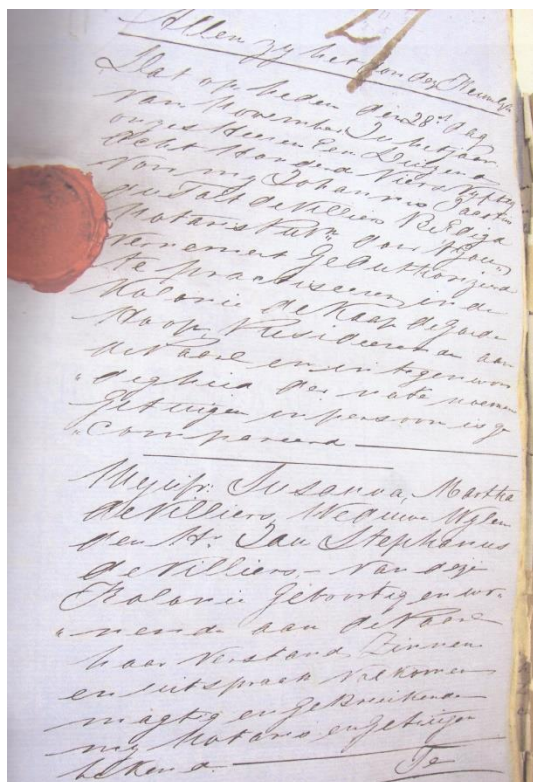 27
Allen zy het kond en Kennelyk
Dat op heden den 28st dag
van November In het jaar
onzes Heeren Een Duizend
Acht Honderd Vier & Vyftig
Voor my Johannes
du Toit de Villiers
Notaris Publ: door 't Gou„
„vernement Geauthoriseerd
te practiseeren in de
Kolonie de Kaap de Goede
Hoop, Resideerende aan
de Paarl en in tegenwoor
„digheid der nate noemen
Getuigen in persoon is ge
„compareerd
Mejufr: Susanna Martha
de Villiers, Weduwe Wylen
den Hr. Jan Stephanus
de Villiers, – Van deze
Kolonie Geboortig en wo„
„nende aan de Paarl
haar Verstand Zinnen
en uitspraak Volkomen
magtig en Gebruikende
my Notaris en getuigen
bekend.
Te